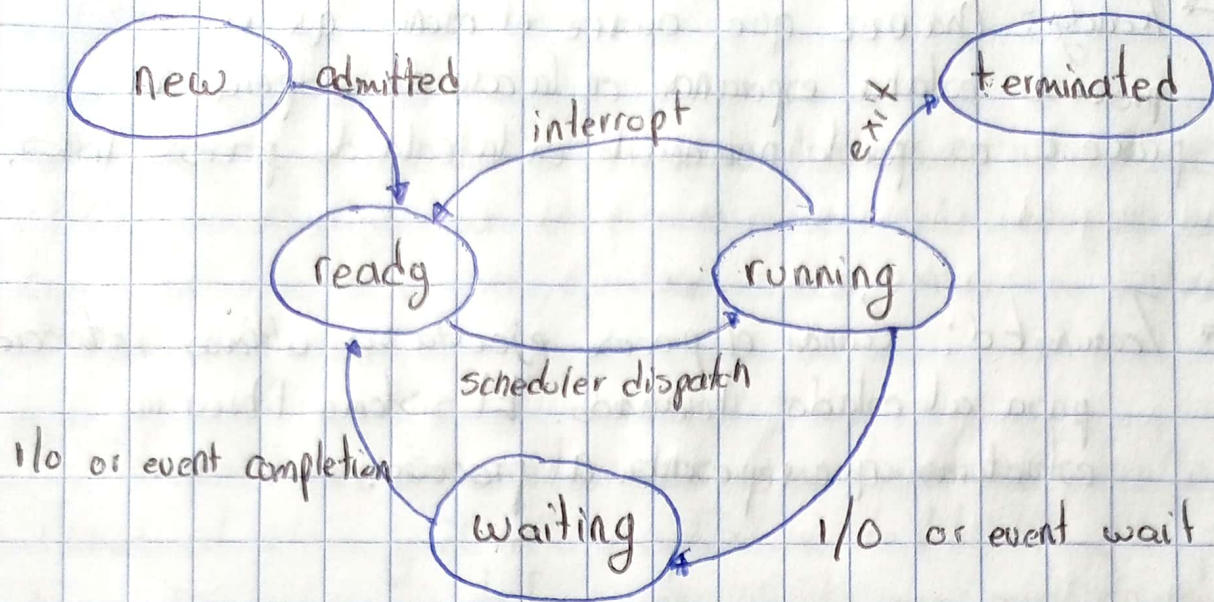 new
admitted
terminated
interropt
exix
ready
running
scheduler dispatch
I/O or event completion
waiting
I/O or event wait